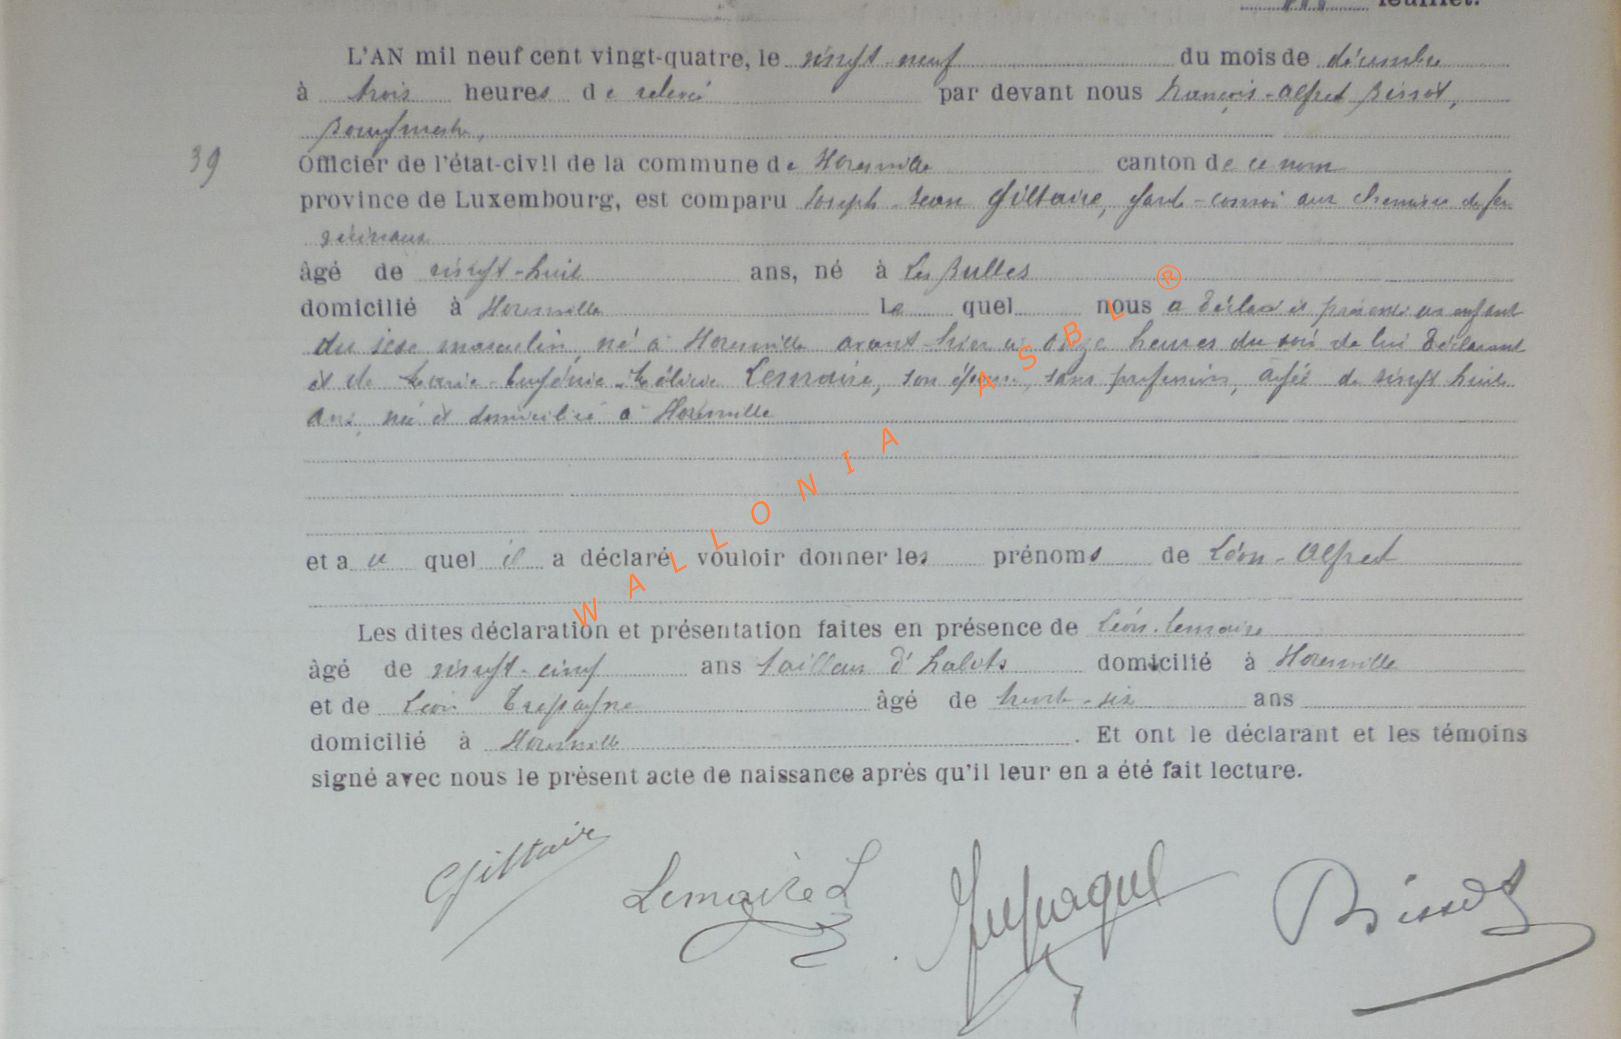 feuillet.
L'AN mil neuf cent vingt-quatre, le vingt-neuf du mois de décembre
à trois heures de relevée par devant nous François-Alfred Bissot,
Bourgmestre,
39
Officier de l'état-civil de la commune de canton de ce nom
province de Luxembourg, est comparu Joseph-Jean Giltaire, garde-convoi aux chemins de fer
vicinaux
âgé de vingt-huit ans, né à Les Bulles
domicilié à le quel nous a déclaré et présenté un enfant
du sexe masculin, né à avant-hier à onze heures du soir de lui déclarant
et de Marie-Eugénie- Lemaire, son épouse, sans profession, âgée de vingt huit
ans, née et domiciliée à
et a u quel il a déclaré vouloir donner les prénoms de Léon-Alfred
Les dites déclaration et présentation faites en présence de Léon Lemaire
âgé de vingt-cinq ans tailleur d'habits domicilié à
et de Léon âgé de trente-six ans
domicilié à . Et ont le déclarant et les témoins
signé avec nous le présent acte de naissance après qu'il leur en a été fait lecture.
Giltaire Lemaire L Bissot
WALLONIA ASBL ®